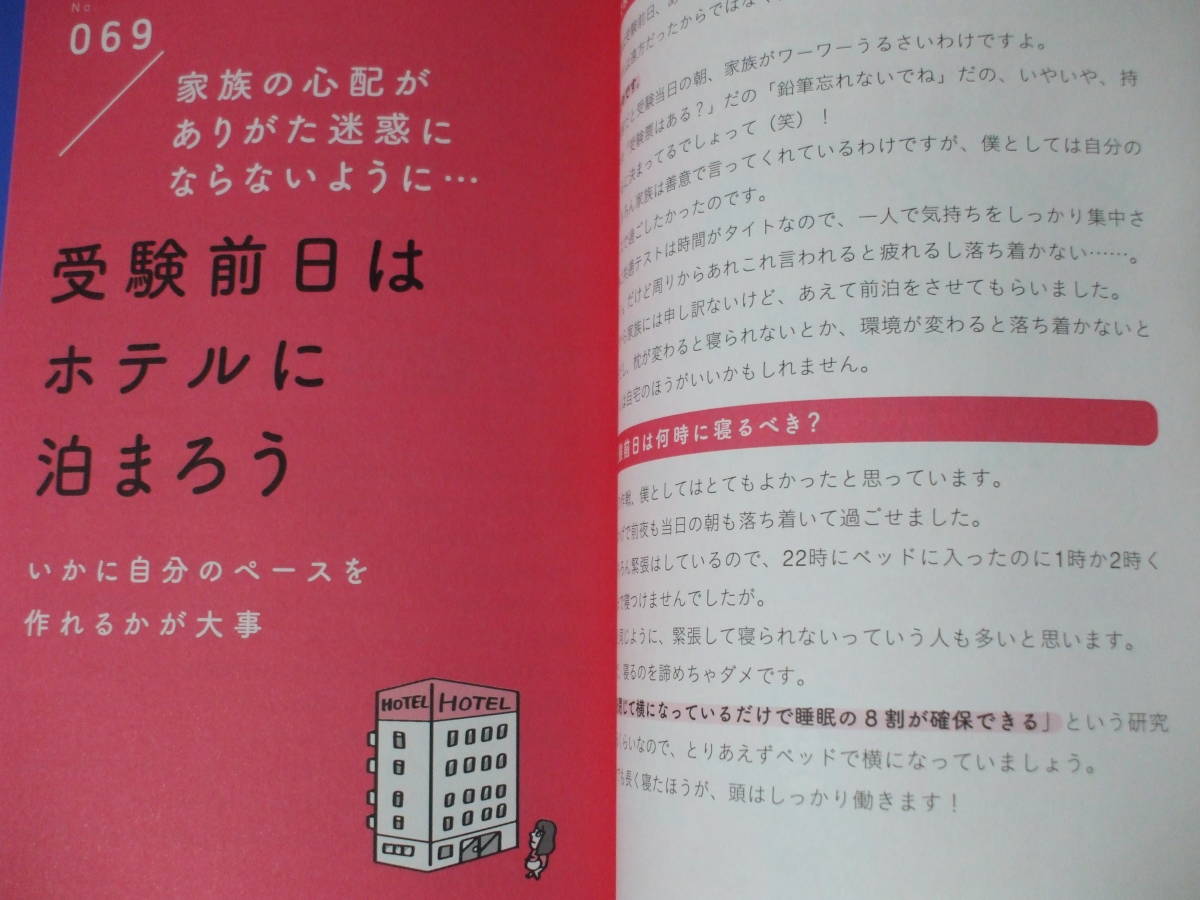 No.
069
家族の心配が
ありがた迷惑に
ならないように…
受験前日は
ホテルに
泊まろう
いかに自分のペースを
作れるかが大事
HOTEL HOTEL
受験前日、
方だったからではなく
です。
と受験当日の朝、家族がワーワーうるさいわけですよ。
「受験票はある？」だの「鉛筆忘れないでね」だの、いやいや、持
に決まってるでしょって（笑）！
ん家族は善意で言ってくれているわけですが、僕としては自分の
で過ごしたかったのです。
テストは時間がタイトなので、一人で気持ちをしっかり集中さ
だけど周りからあれこれ言われると疲れるし落ち着かない……。
ら家族には申し訳ないけど、あえて前泊をさせてもらいました。
し、枕が変わると寝られないとか、環境が変わると落ち着かないと
は自宅のほうがいいかもしれません。
前日は何時に寝るべき？
戦、僕としてはとてもよかったと思っています。
げで前夜も当日の朝も落ち着いて過ごせました。
ろん緊張はしているので、22時にベッドに入ったのに1時か2時く
で寝つけませんでしたが。
同じように、緊張して寝られないっていう人も多いと思います。
、寝るのを諦めちゃダメです。
閉じて横になっているだけで睡眠の８割が確保できる」という研究
くらいなので、とりあえずベッドで横になっていましょう。
も長く寝たほうが、頭はしっかり働きます！